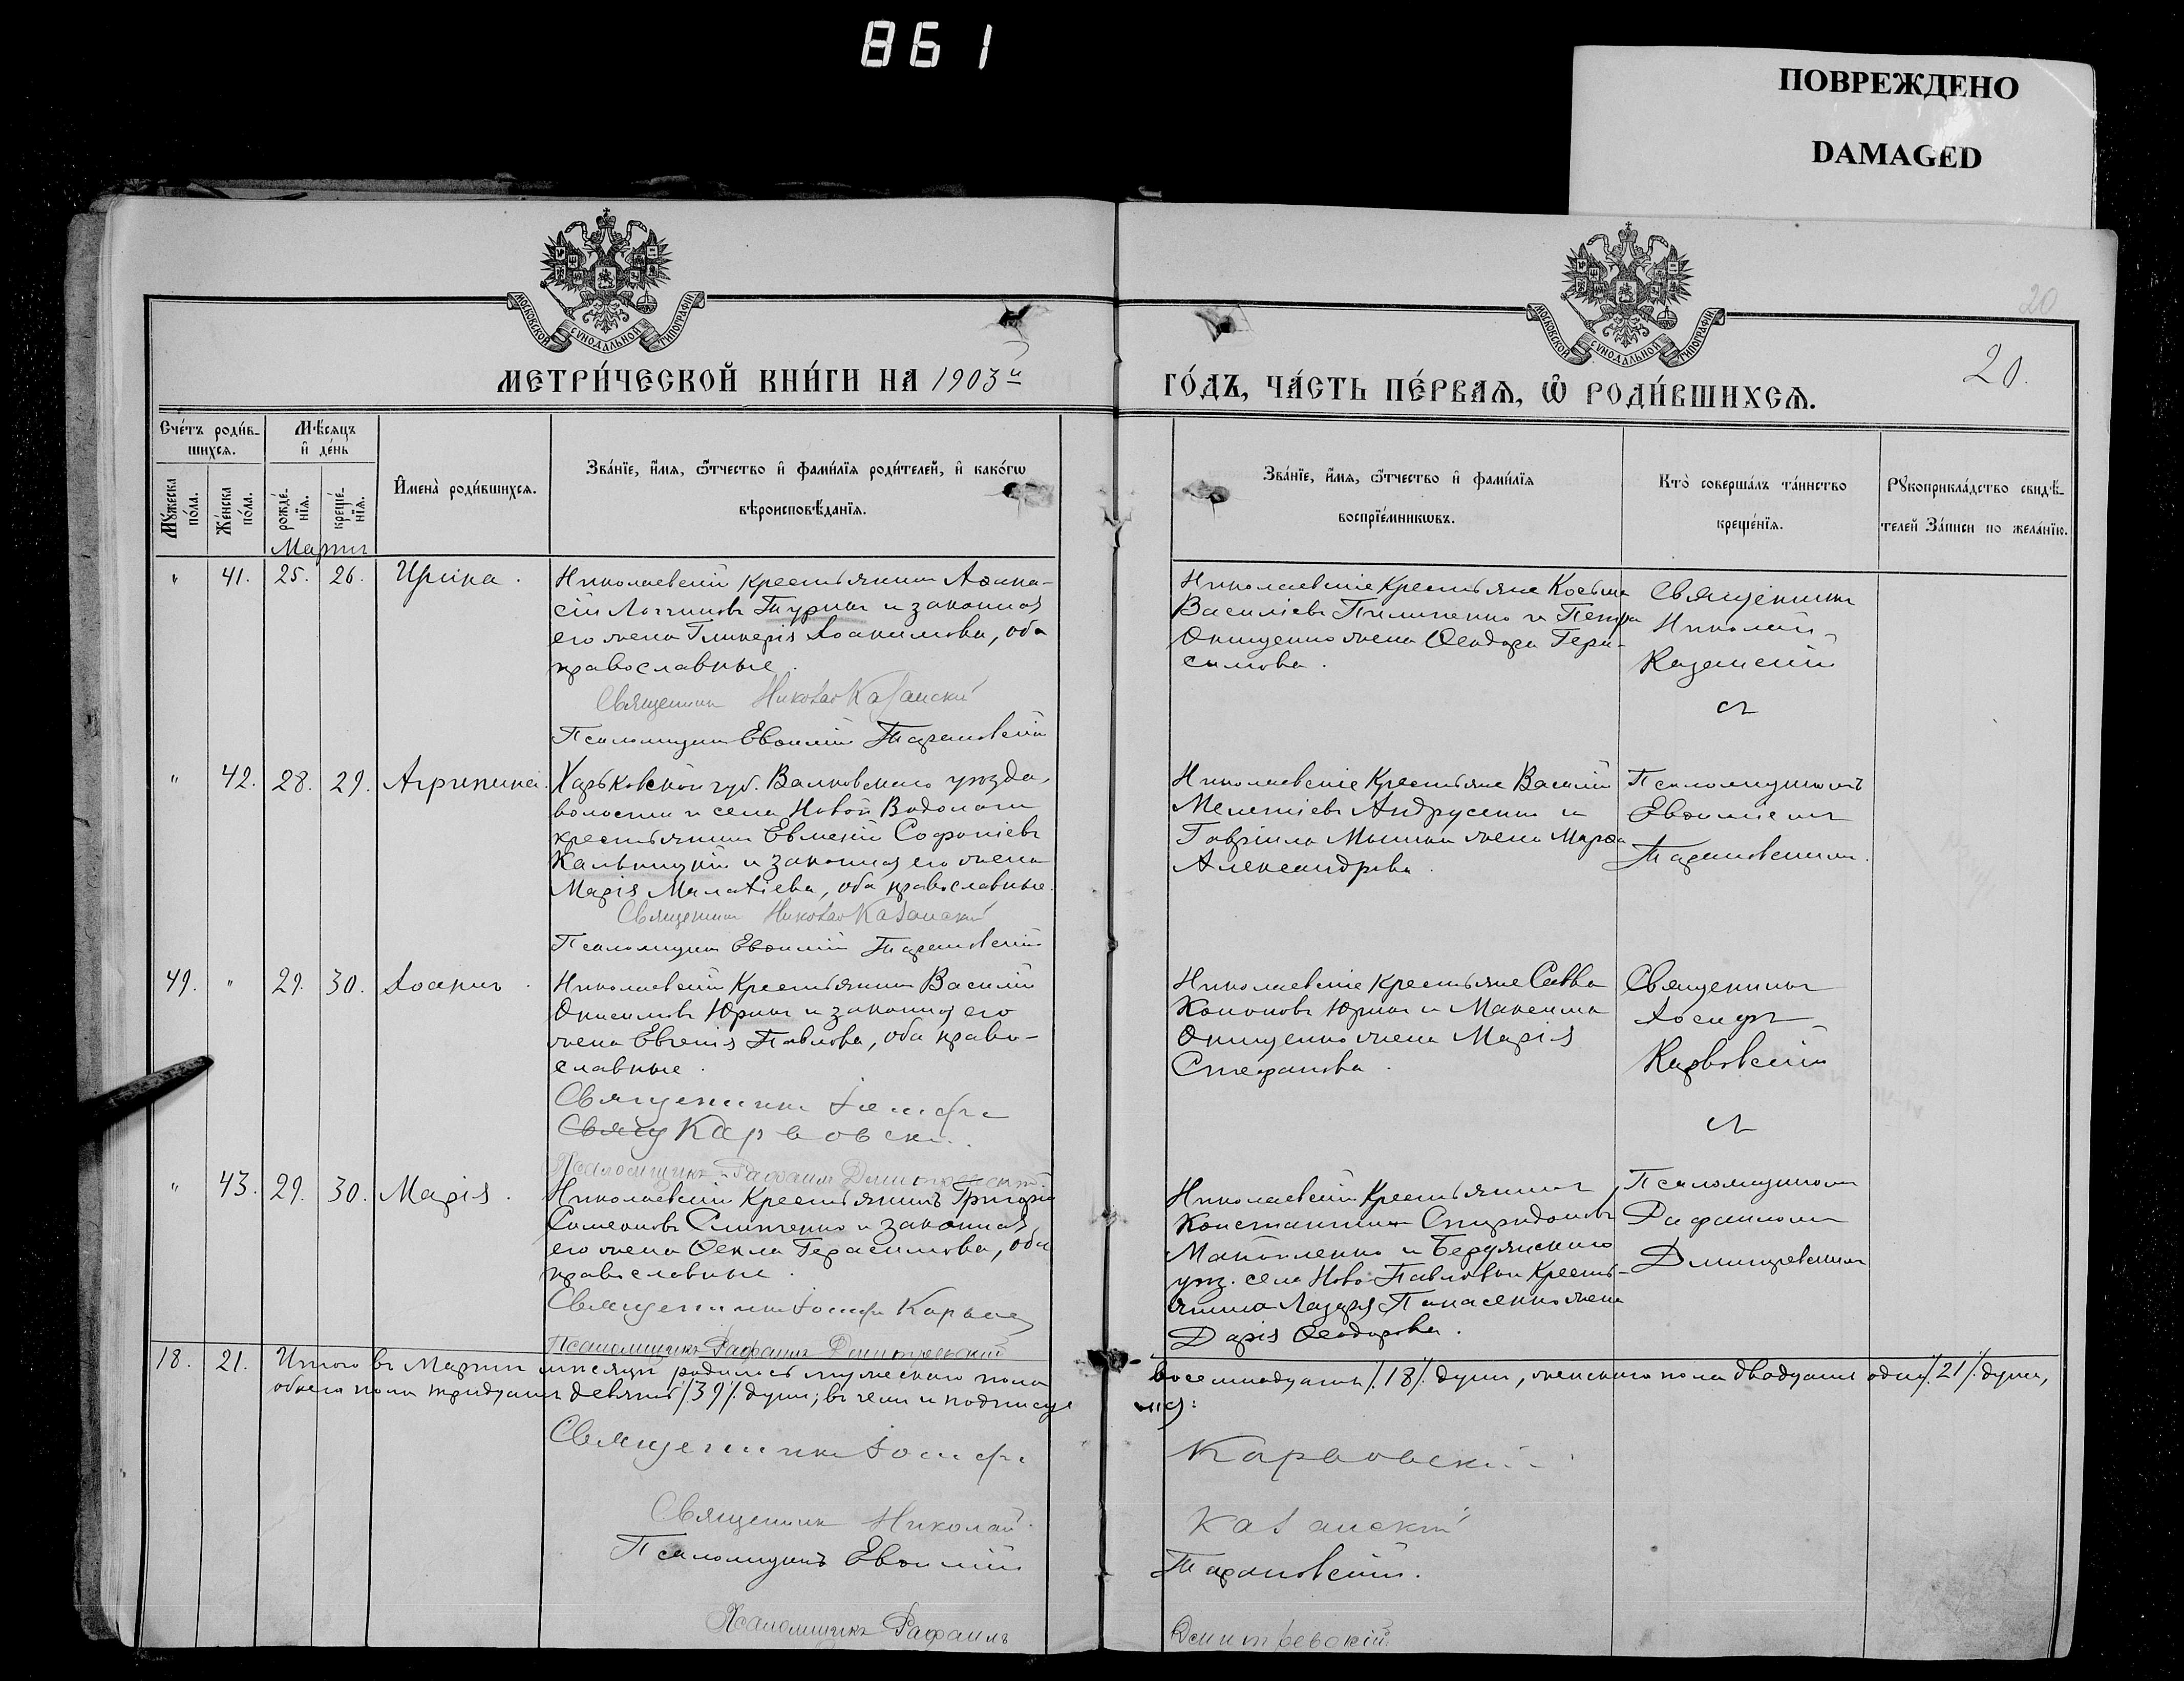 861
ПОВРЕЖДЕНО
DAMAGED
МОСКОВСКОЙ СѴНОДАЛЬНОЙ ТИПОГРАФІИ
МОСКОВСКОЙ СѴНОДАЛЬНОЙ ТИПОГРАФІИ
20
20.
МЕТРИ́ЧЕСКОЙ КНИ́ГИ НА 1903й
ГО́ДЪ, ЧА́СТЬ ПЕ́РВАѦ, Ѡ҆ РОДИ́ВШИХСѦ.
Сче́тъ роди́в-
шихся.
Мѣ́сяцъ
и҆ де́нь
Мꙋ́жеска по́ла.
Же́нска по́ла.
рожде́-нїя.
креще́-нїя.
И҆мена̀ роди́вшихся.
Зва́нїе, и҆́мя, ѻ҆́тчество и҆ фами́лїя роди́телей, и҆ како́гѡ
вѣроисповѣ́данїя.
Зва́нїе, и҆́мя, ѻ҆́тчество и҆ фами́лїя
воспрїе́мникѡвъ.
Кто̀ соверша́лъ та́инство
креще́нїя.
Рꙋкоприкла́дство свидѣ́-
телей За́писи по жела́нїю.
Мартъ
" 41. 25. 26. Ирина.
Николаевскій крестьянинъ Аѳана-
сій Логгиновъ Туринъ и законная
его жена Гликерія Іоакимова, оба
православные.
Священникъ Николай Казанскій
Псаломщикъ Евѳимій Тарановскій
Николаевскіе крестьяне Косьма
Василіевъ Пилипенко и Петра
Онищенко жена Ѳеодора Гера-
симова.
Священникъ
Николай
Казанскій
" 42. 28. 29. Агрипина.
Харьковской губ. Валковскаго уѣзда,
волости и села Новой Водолаги
крестьянинъ Евменій Софоніевъ
и законная его жена
Марія Малахіева, оба православные.
Священникъ Николай Казанскій
Псаломщикъ Евѳимій Тарановскій
Николаевскіе крестьяне Василій
Мелетіевъ Андрусенко и
Гавріила жена Марѳа
Александрова.
Псаломщикомъ
Евѳиміемъ
Тарановскимъ.
49. " 29. 30. Іоаннъ.
Николаевскій крестьянинъ Василій
Онисимовъ Юринъ и законная его
жена Евгенія Павлова, оба право-
славные.
Священникъ Іосифъ
Карвовскій
Псаломщикъ Рафаилъ Димитревскій
Николаевскіе крестьяне Савва
Кононовъ Юринъ и Максима
Онищенко жена Марія
Стефанова.
Священникъ
Іосифъ
Карвовскій
" 43. 29. 30. Марія.
Николаевскій крестьянинъ Григорій
Симеоновъ и законная
его жена Ѳекла Герасимова, оба
православные.
Священникъ Іосифъ
Псаломщикъ Рафаилъ Димитревскій
Николаевскій крестьянинъ
Константинъ Спиридоновъ
и Бердянскаго
уѣз. села Ново-Павловки крестья-
нина Лазаря Панасенко жена
Дарія Ѳеодорова.
Псаломщикомъ
Рафаиломъ
Димитревскимъ
18. 21. Итого въ Мартѣ мѣсяцѣ родилось мужескаго пола восемнадцать /.18/. душъ, женскаго пола двадцать одна /.21/. душа,
обоего пола тридцать девять /.39/. душъ; въ чемъ и подписуемся:
Священникъ Іосифъ Карвовскій
Священникъ Николай Казанскій
Псаломщикъ Евѳимій Тарановскій.
Псаломщикъ Рафаилъ Димитревскій